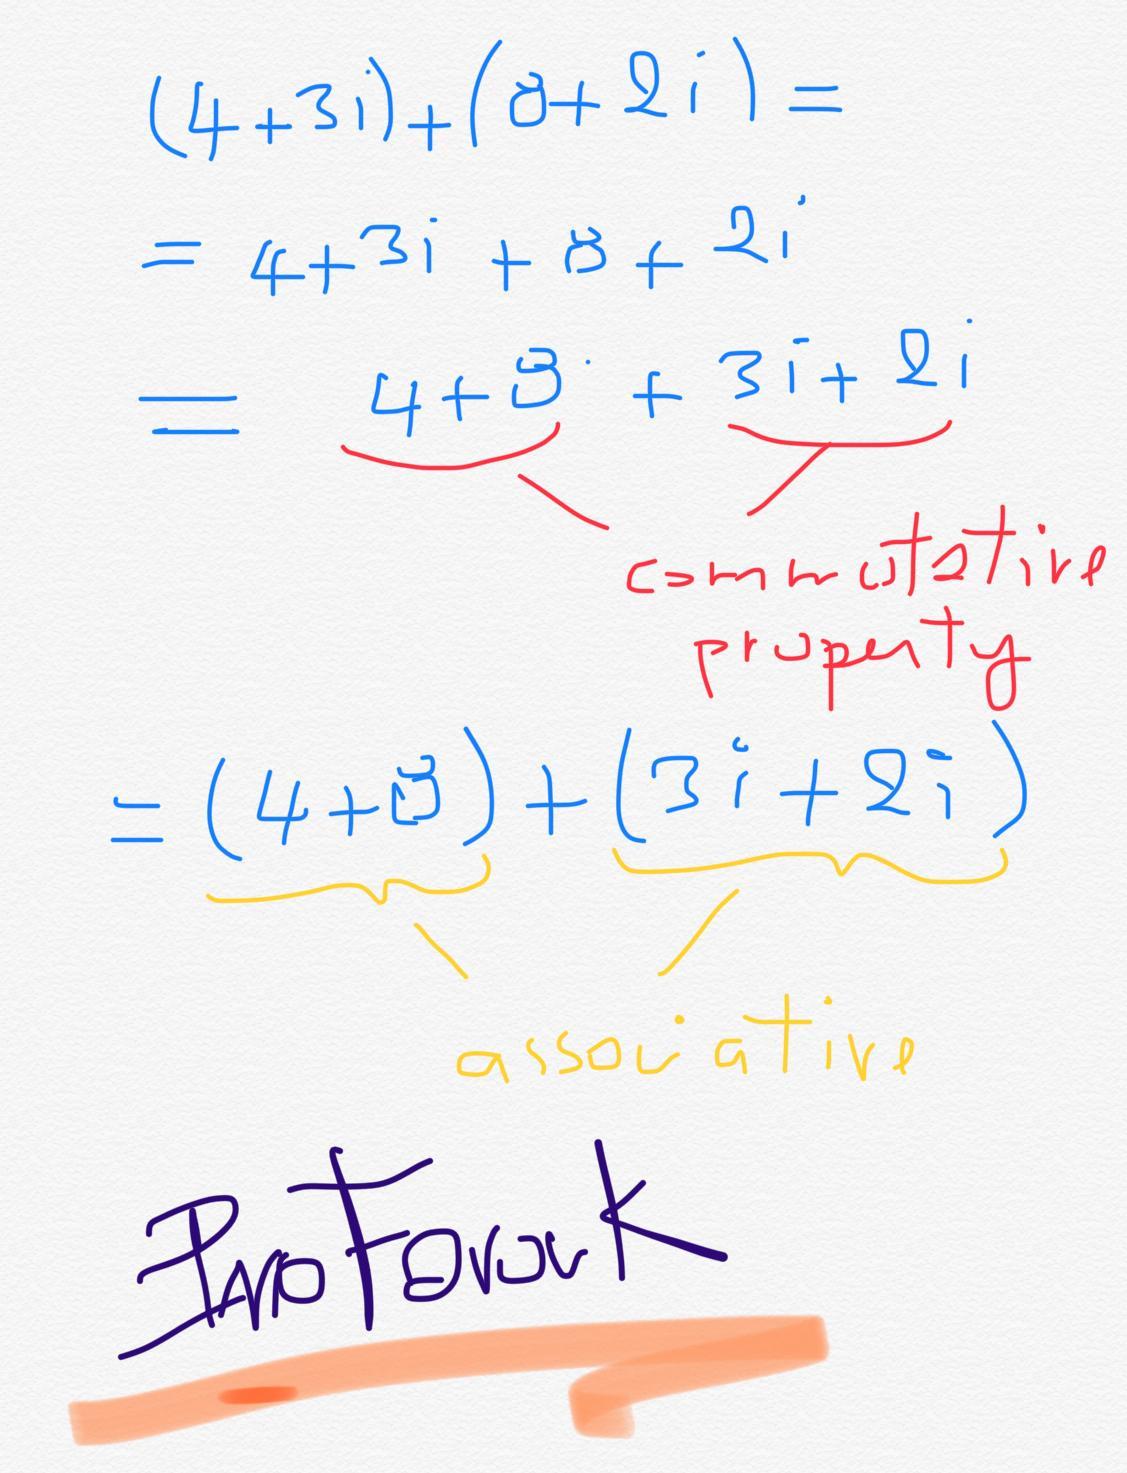 (4+3i)+(8+2i)=
= 4+3i + 8 + 2i
= 4+8 + 3i+2i
commutative
property
= (4+8)+(3i+2i)
associative